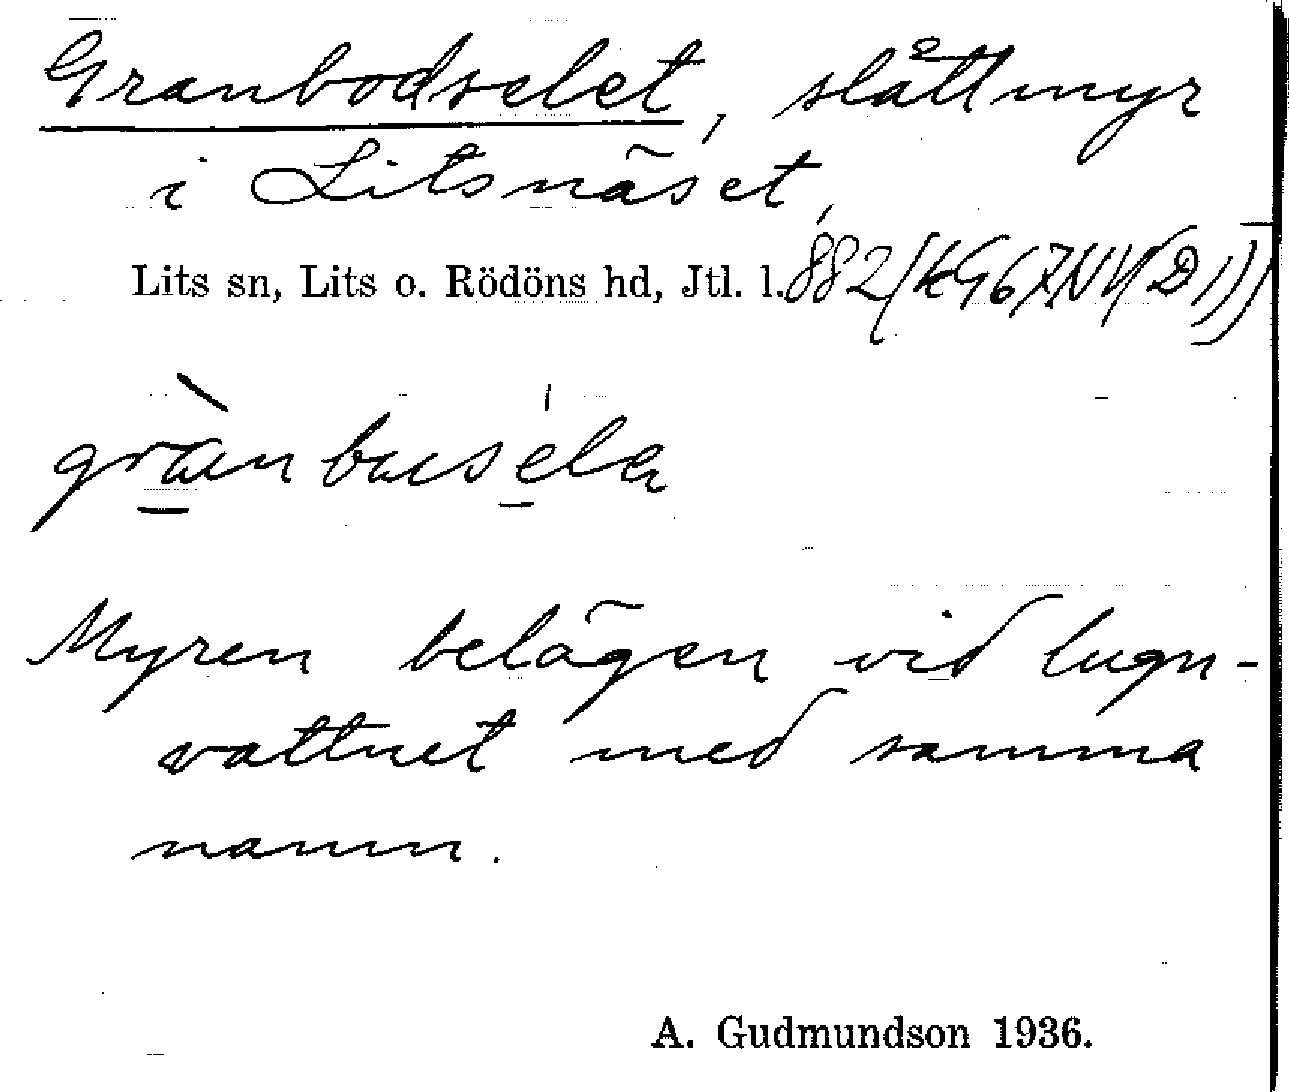 Granbodselet, slåttmyr
i Litsnäset,
Lits sn, Lits o. Rödöns hd, Jtl. l. 882(KG67NV(D1))
grànbusela
Myren belägen vid lugn-
vattnet med samma
namn.
A. Gudmundson 1936.